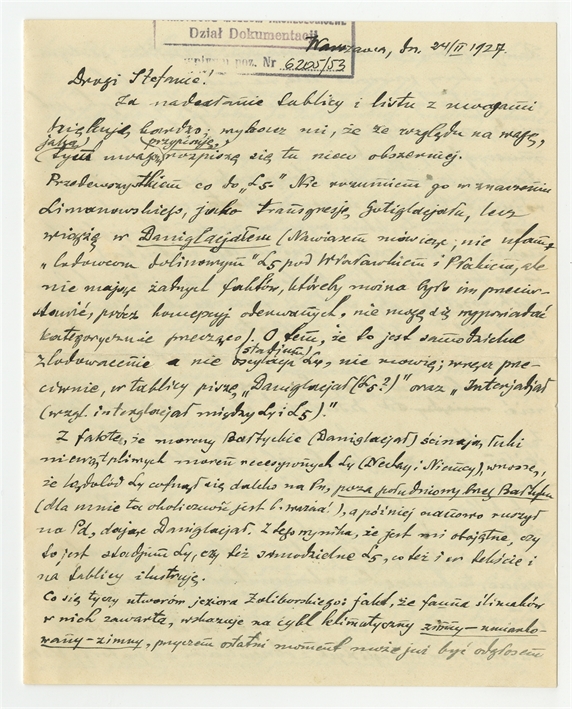 Dział Dokumentacji
poz. Nr 6205/53
Warszawa, dn. 24/II 1927.
Drogi Stefanie!
Za nadesłanie tablicy i listu z uwagami
dziękuję bardzo; wybacz mi, że ze względu na wagę,
jaką tym uwagom przypisuję, rozpiszę się tu nieco obszerniej.
Przedewszystkiem co do „Ł5". Nie rozumiem go w znaczeniu
Limanowskiego, jako transgresję Gotiglacjału, lecz
widzę w Daniglacjałem (Nawiasem mówiąc, nie ufam
„lodowcom dolinowym" Ł5 pod Włocławkiem i Płockiem, ale
nie mając żadnych faktów, któreby można było im przeciw-
stawić, prócz koncepcyj oderwanych, nie mogę się wypowiadać
kategorycznie przecząco). O tem, że to jest samodzielne
zlodowacenie a nie stadjum Ł4, nie mówię; wręcz prze-
ciwnie, w tablicy piszę „Daniglacjał (Ł5?)" oraz „Interstadjał
(wzgl. interglacjał między Ł4 i Ł5)."
Z faktu, że moreny Bałtyckie (Daniglacjał) ścinają łuki
niewątpliwych moren recesyjnych Ł4 (Duńczycy i Niemcy), wnoszę,
że lądolód Ł4 cofnął się daleko na Pn, poza południowy brzeg Bałtyku
(dla mnie ta okoliczność jest b. ważna!), a później nanowo ruszył
na Pd, dając Daniglacjał. Z tego wynika, że jest mi obojętne, czy
to jest stadjum Ł4, czy też samodzielne Ł5, co też i w tekście i
na tablicy ilustruję.
Co się tyczy utworów jeziora Żoliborskiego: fakt, że fauna ślimaków
w nich zawarta, wskazuje na cykl klimatyczny zimny-umiarko-
wany-zimny, przyczem ostatni moment może już być odgłosem